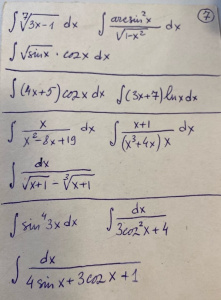 ∫ ⁷√(3x-1) dx   ∫ arcsin²x / √(1-x²) dx   (7)
∫ √sinx · cosx dx
∫ (4x+5) cosx dx   ∫ (3x+7) lnx dx
∫ x / (x²-8x+19) dx   ∫ (x+1) / ((x³+4x) x) dx
∫ dx / (√(x+1) - ³√(x+1))
∫ sin⁴ 3x dx   ∫ dx / (3cos²x+4)
∫ dx / (4 sinx + 3cosx + 1)